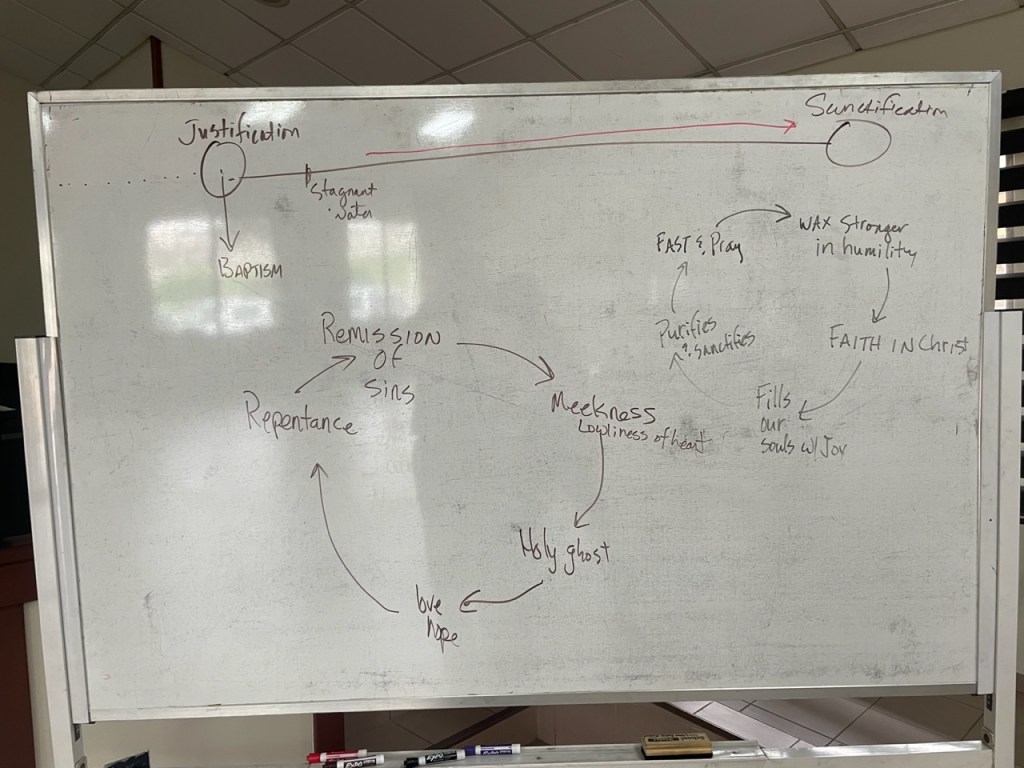 Justification
Sanctification
Stagnant
Water
BAPTISM
FAST & Pray
WAX Stronger
in humility
FAITH IN Christ
Fills
our
souls w/ Joy
Purifies
& sanctifies
REMISSION
Of
Sins
Meekness
Lowliness of heart
Holy ghost
love
hope
Repentance